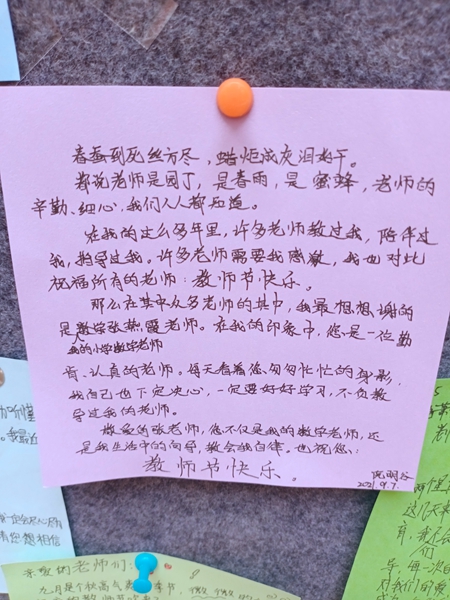 春蚕到死丝方尽，蜡炬成灰泪始干。
都说老师是园丁，是春雨，是蜜蜂，老师的
辛勤、细心，我们人人都知道。
在我的这么多年里，许多老师教过我，陪伴过
我，指导过我。许多老师需要我感激，我也对此
祝福所有的老师：教师节快乐。
那么在其中众多老师的其中，我最想想、谢的
是数学张燕霞老师。在我的印象中，您是一位勤
我的小学数学老师
肯、认真的老师。每天看着您匆匆忙忙的身影，
我自己也下定决心，一定要好好学习，不负教
导过我的老师。
敬爱的张老师，您不仅是我的数学老师，还
是我生活中的向导，教会我自律。也祝您：
教师节快乐。
2021.9.7.
我最近
您想相信
亲爱的老师们：
九月是个秋高气爽的季节，
这几天来
育，我
们
导，每一次的
对我们的爱